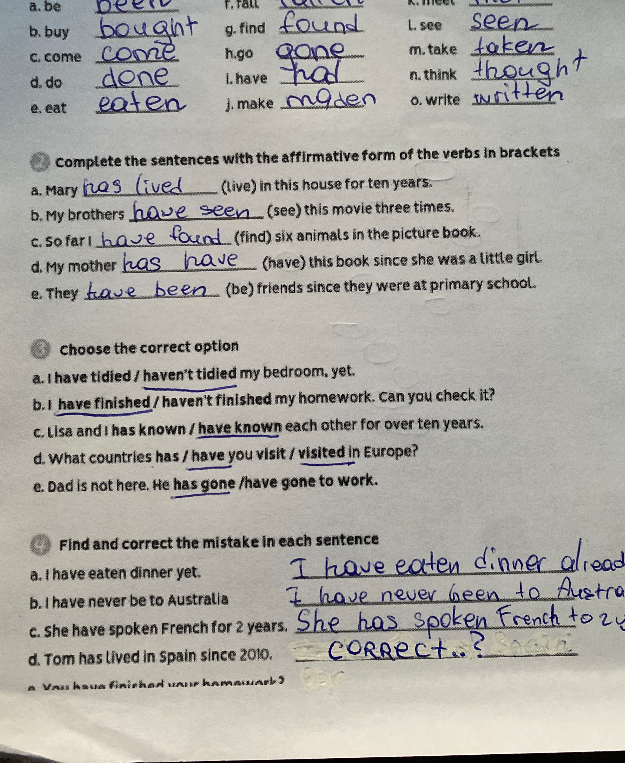 a. be been f. fall k. meet
b. buy bought g. find found l. see seen
c. come come h. go gone m. take taken
d. do done i. have had n. think thought
e. eat eaten j. make maden o. write written
2 Complete the sentences with the affirmative form of the verbs in brackets
a. Mary has lived (live) in this house for ten years.
b. My brothers have seen (see) this movie three times.
c. So far I have found (find) six animals in the picture book.
d. My mother has have (have) this book since she was a little girl.
e. They have been (be) friends since they were at primary school.
3 Choose the correct option
a. I have tidied / haven't tidied my bedroom, yet.
b. I have finished / haven't finished my homework. Can you check it?
c. Lisa and I has known / have known each other for over ten years.
d. What countries has / have you visit / visited in Europe?
e. Dad is not here. He has gone /have gone to work.
4 Find and correct the mistake in each sentence
a. I have eaten dinner yet. I have eaten dinner alread
b. I have never be to Australia I have never been to Austra
c. She have spoken French for 2 years. She has spoken French to 2 y
d. Tom has lived in Spain since 2010. CORRECT..?
e. You have finished your homework?